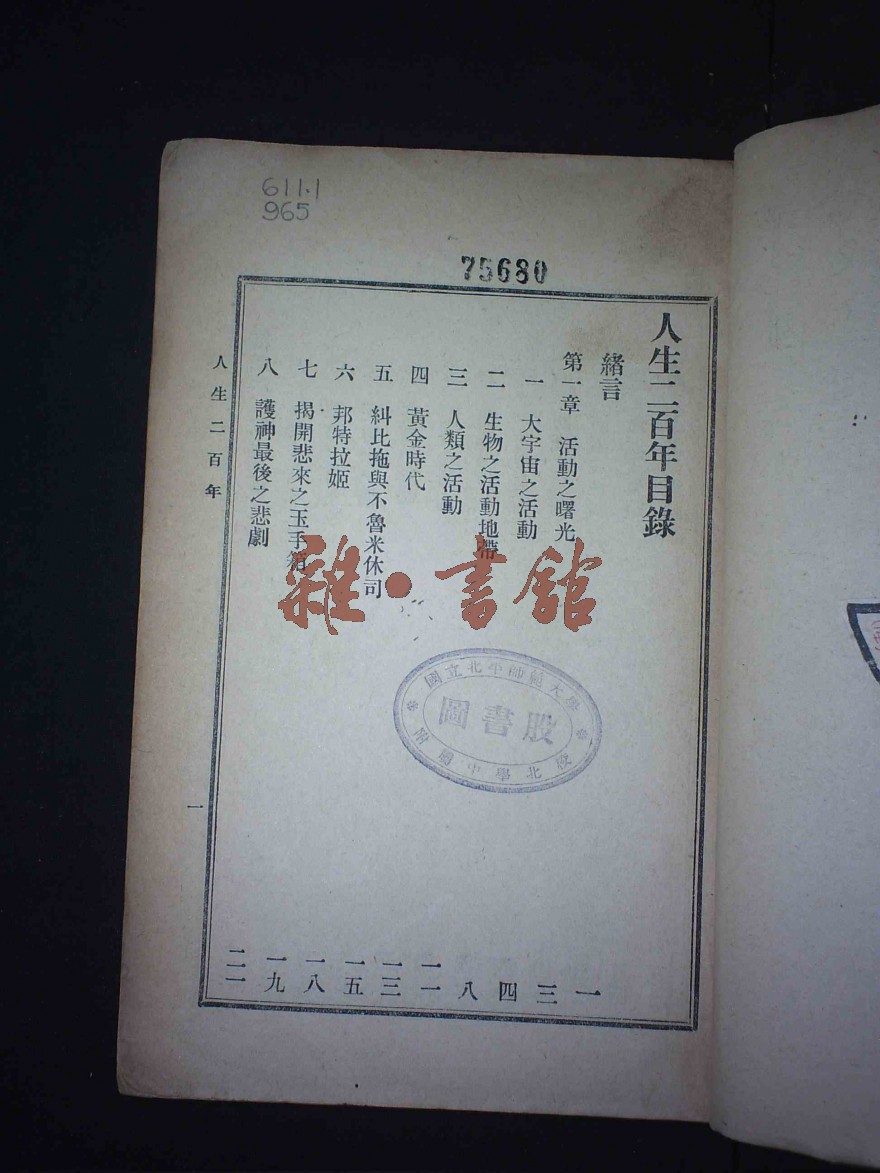 611.1
965
75680
人生二百年目錄
緒言 一
第一章 活動之曙光 三
一 大宇宙之活動 四
二 生物之活動地帶 八
三 人類之活動 一一
四 黃金時代 一三
五 糾比拖與不魯米休司 一五
六 邦特拉姬 一八
七 揭開悲來之玉手箱 一九
八 護神最後之悲劇 二一
人生二百年
一
雜·書館
國立北平師範大學
圖書股
附屬中學北校